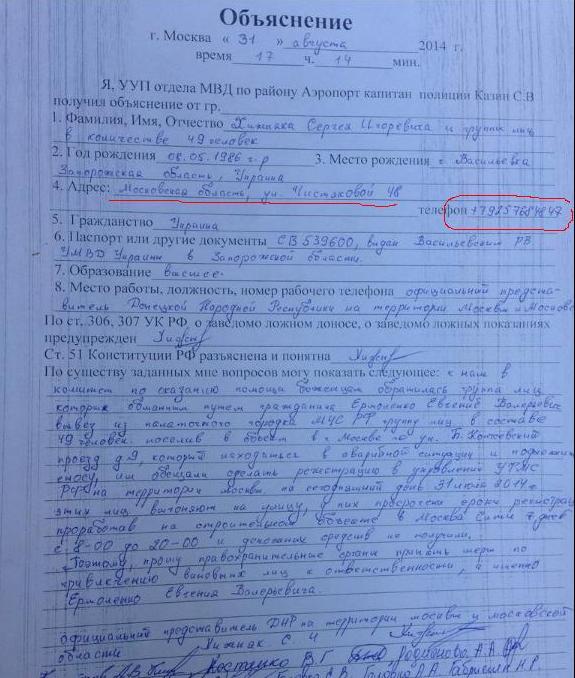 Объяснение
г. Москва « 31 » августа 2014 г.
время 17 ч. 14 мин.
Я, УУП отдела МВД по району Аэропорт капитан полиции Казин С.В
получил объяснение от гр.
1. Фамилия, Имя, Отчество Хижняка Сергея Игоревича и группы лиц
в количестве 49 человек
2. Год рождения 08.05.1986 г.р 3. Место рождения г. Васильевка
Запорожская область, Украина
4. Адрес: Московская область, ул. Чистяковой 48
телефон
5. Гражданство Украина
6. Паспорт или другие документы СВ 539600, выдан Васильевским РВ
УМВД Украины в Запорожской области.
7. Образование высшее
8. Место работы, должность, номер рабочего телефона официальный предста-
витель Донецкой Народной Республики на территории Москвы и Московс
По ст. 306, 307 УК РФ, о заведомо ложном доносе, о заведомо ложных показаниях
предупрежден
Ст. 51 Конституции РФ разъяснена и понятна
По существу заданных мне вопросов могу показать следующее: к нам в
комитет по оказанию помощи беженцам обратилась группа лиц
которых обманным путем гражданина Ермоленко Евгений Валерьевич
вывез из палаточного городка МЧС РФ группу лиц в составе
49 человек. поселив в объект в г. Москве по ул. Б.
проезд д 9, который находиться в аварийной ситуации и
сносу, им обещали сделать регистрацию в управлении УФМС
РФ на территории москвы, на сегодняшний день 31 июля 2014 г.
этих лиц выгоняют на улицу, у них просрочены сроки регистрац
проработав на строительном объекте в Москва Сити 7 дней
с 8-00 до 20-00 и денежных средств не получили.
Поэтому, прошу правоохранительные органы принять меры по
привлечению виновных лиц к ответственности, а именно
Ермоленко Евгения Валерьевича.
официальный представитель ДНР на территории москвы и московской
области Хижняк С. И
Костенко В. Г. Родионова А. А.